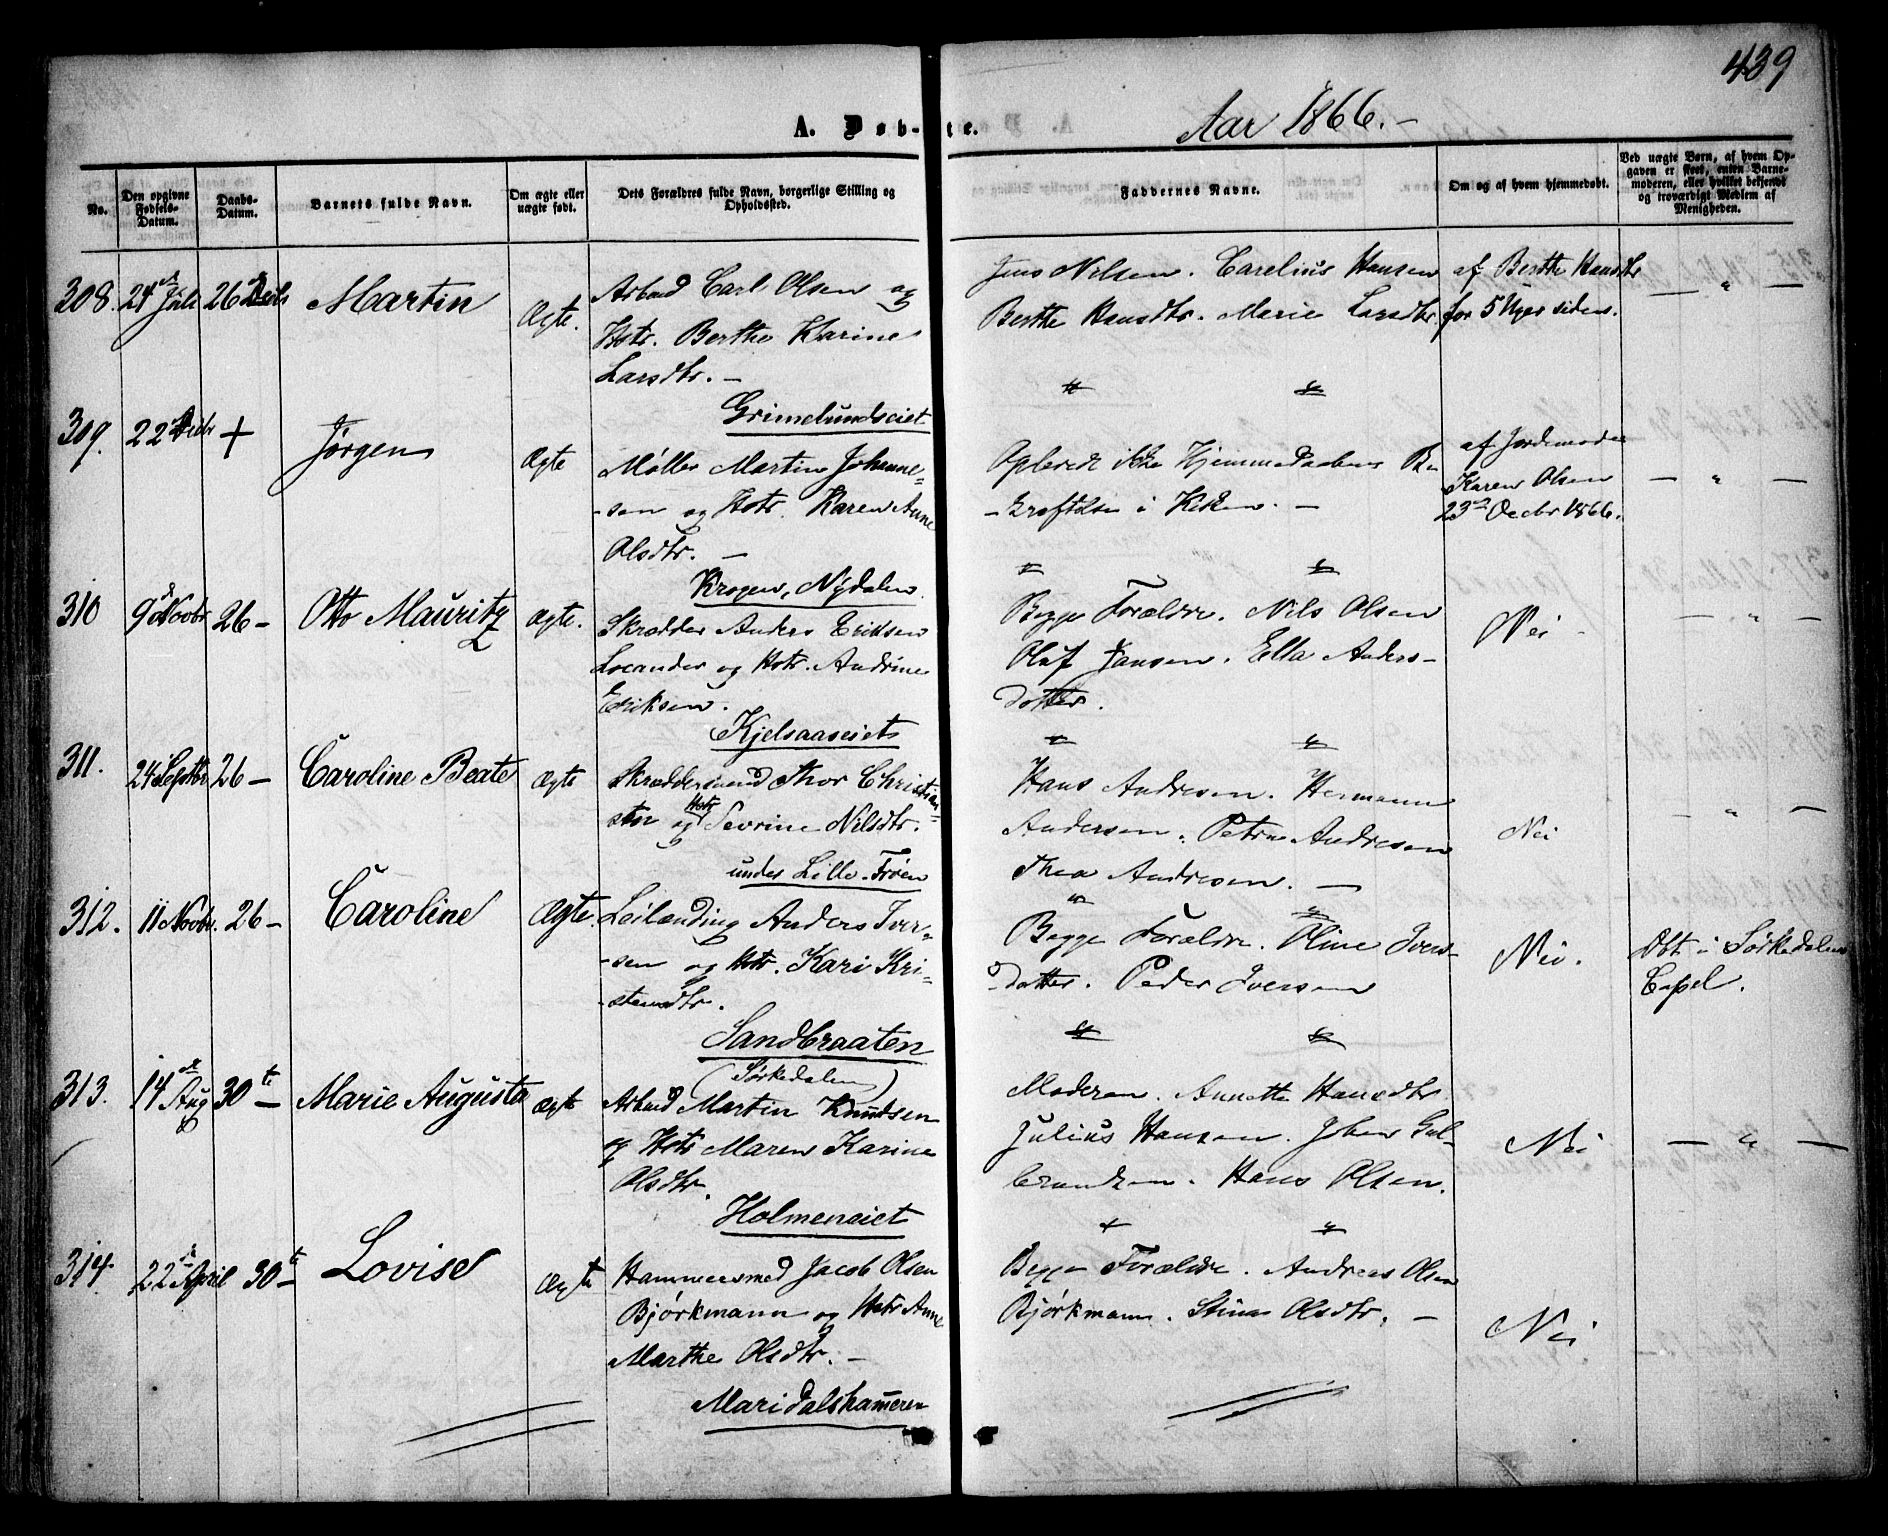 439
A. Døb-te.
Aar 1866.
No.
Den opgivne Fødsels-Datum.
Daabs-Datum.
Barnets fulde Navn.
Om ægte eller uægte født.
Dets Forældres fulde Navn, borgerlige Stilling og Opholdssted.
Faddernes Navne.
Om og af hvem hjemmedøbt.
Ved uægte Børn, af hvem Opgaven er skeet, enten Barnemoderen, eller hvilket bekjendt og troværdigt Medlem af Menigheden.
308. 24 Juli 26 Decbr Martin Ægte.
Arbmd Carl Olsen og
Hstr. Berthe Karine
Larsdtr. —
Grimelundseiet
Jens Nilsen. Carelius Hansen
Berthe Hansdtr. Marie Larsdtr
af Berthe Hansdtr
for 5 Uger siden.
— " —
309. 22 Decbr + Jørgen Ægte
Møller Martin Johanne-
-sen og Hstr. Karen Anne
Olsdtr. —
Krogen, Nydalen
Oplevede ikke Hjemmedaabens Be-
-kræftelse i Kirken. —
af Jordemoder
Karen Olsen
23de Decbr 1866.
— " —
310 9de Novbr 26 — Otto Mauritz Ægte.
Skrædder Anders Eriksen
Locander og Hstr. Andrine
Eriksen.
Kjelsaaseiet
Begge Forældre. Nils Olsen
Oluf Jansen. Ella Anders-
datter.
Nei
— " —
311. 24 Septbr 26 — Caroline Beate Ægte
Skræddersvend Thor Christian-
sen og Hstr Sevrine Nilsdtr.
under Lille-Frøen
Hans Andresen. Hermann
Andersen. Petra Andresen
Thea Andresen. —
Nei
— " —
312. 11 Novbr. 26 — Caroline Ægte.
Leilænding Anders Iver-
-sen og Hstr. Kari Kri-
-stensdtr.
Sandbraaten
(Sørkedalen)
Begge Forældre. Oline Ivers-
datter. Peder Iversen
Nei.
Dbt i Sørkedalens
Capel.
313. 14de Aug 30te — Marie Augusta Ægte
Arbmd Martin Knudsen
og Hstr Maren Karine
Olsdtr.
Holmeneiet
Moderen. Annette Hansdtr.
Julius Hansen. Johan Gul-
brandsen. Hans Olsen.
Nei
— " —
314. 22de April 30te — Lovise Ægte
Hammersmed Jacob Olsen
Bjørkmann og Hstr Anne
Marthe Olsdtr. —
Maridalshameren
Begge Forældre. Andreas Olsen
Bjørkmann. Stina Olsdtr. —
Nei